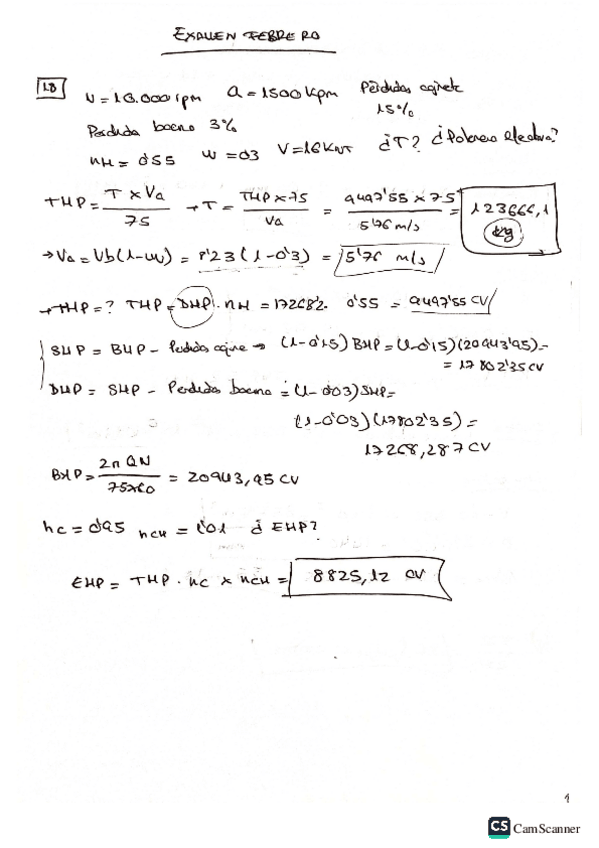 EXAMEN FEBRERO
1B N = 10.000 rpm Q = 1500 Kpm Pérdidas cojinete 15%
Perdida bocina 3%
nH = 0'55 w = 03 V = 16 KNT ¿T? ¿Potencia efectiva?
THP = T x Va / 75 → T = THP x 75 / Va = 9497'55 x 75 / 5'76 m/s = 123666,1 kg
→ Va = Vb (1-w) = 8'23 (1-0'3) = 5'76 m/s
→ THP = ? THP = DHP · nH = 17268'2 · 0'55 = 9497'55 CV
SHP = BHP - Perdidas cojine → (1-0'15) BHP = (1-0'15)(20943'95) =
= 17802'35 CV
DHP = SHP - Perdidas bocina = (1-0'03) SHP =
(1-0'03)(17802'35) =
17268,287 CV
BHP = 2π QN / 75x60 = 20943,95 CV
nc = 0'95 ncH = 1'01 ¿EHP?
EHP = THP · nc x ncH = 8825,12 CV
1
CS CamScanner